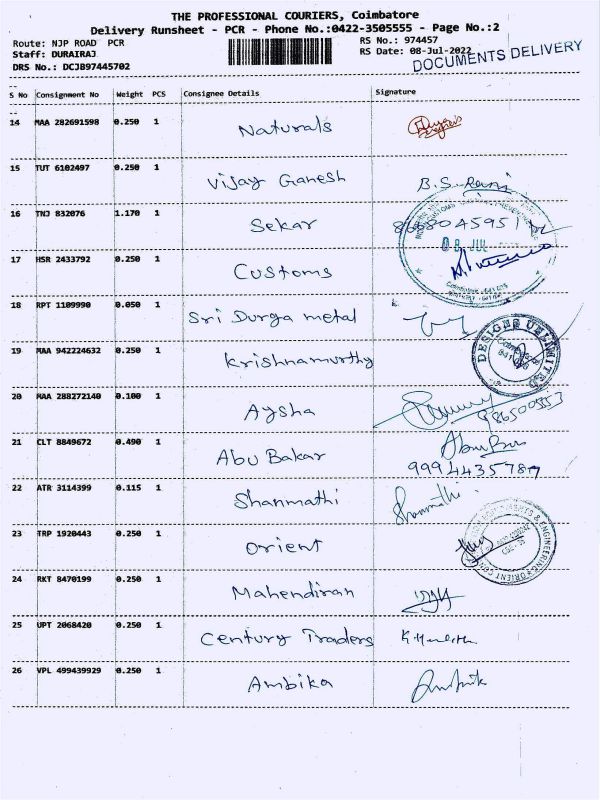 THE PROFESSIONAL COURIERS, Coimbatore
Delivery Runsheet - PCR - Phone No.:0422-3505555 - Page No.:2
Route: NJP ROAD PCR RS No.: 974457
Staff: DURAIRAJ RS Date: 08-Jul-2022
DRS No.: DCJB97445702 DOCUMENTS DELIVERY
S No Consignment No Weight PCS Consignee Details Signature
14 MAA 282691598 0.250 1 Naturals
15 TUT 6102497 0.250 1 Vijay Ganesh B.S. Rani
16 TNJ 832076 1.170 1 Sekar
08 JUL
17 HSR 2433792 0.250 1 Customs
18 RPT 1109990 0.050 1 Sri Durga metal
19 MAA 942224632 0.250 1 Krishnamurthy DESIGNS UNLIMITED
20 MAA 288272140 0.100 1 Aysha
21 CLT 8849672 0.490 1 Abu Bakar
9994435787
22 ATR 3114399 0.115 1 Shanmathi Shanmathi
23 TRP 1920443 0.250 1 Orient
24 RKT 8470199 0.250 1 Mahendiran
25 UPT 2068420 0.250 1 Century Traders
26 VPL 499439929 0.250 1 Ambika